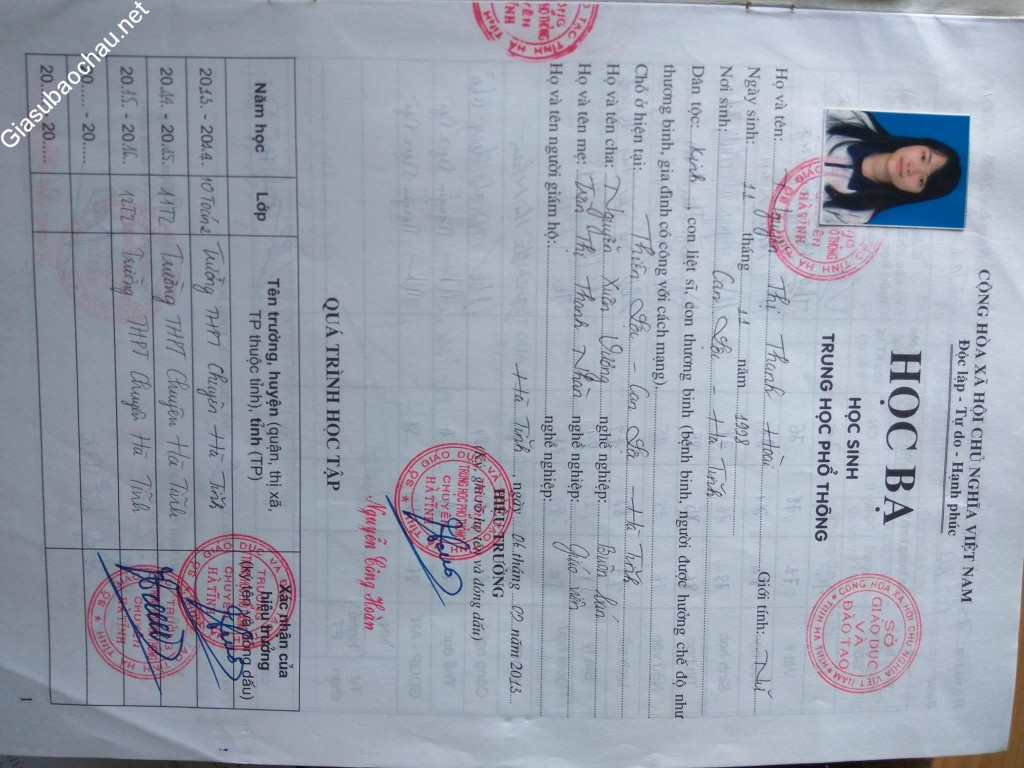 CỘNG HÒA XÃ HỘI CHỦ NGHĨA VIỆT NAM
Độc lập - Tự do - Hạnh phúc
HỌC BẠ
HỌC SINH
TRUNG HỌC PHỔ THÔNG
SỞ GIÁO DỤC VÀ ĐÀO TẠO
CỘNG HÒA XÃ HỘI CHỦ NGHĨA VIỆT NAM
Họ và tên: Nguyễn Thị Thanh Hoài Giới tính: Nữ
Ngày sinh: 11 tháng 11 năm 1998
Nơi sinh: Can Lộc - Hà Tĩnh
Dân tộc: Kinh, con liệt sĩ, con thương binh (bệnh binh, người được hưởng chế độ như
thương binh, gia đình có công với cách mạng)
Chỗ ở hiện tại: Thiên Lộc - Can Lộc - Hà Tĩnh
Họ và tên cha: Nguyễn Xuân Vường nghề nghiệp: Buôn bán
Họ và tên mẹ: Trần Thị Thanh Nhàn nghề nghiệp: Giáo viên
Họ và tên người giám hộ: nghề nghiệp:
Hà Tĩnh, ngày 06 tháng 09 năm 2013
HIỆU TRƯỞNG
(Ký, ghi rõ họ tên và đóng dấu)
Nguyễn Công Hoàn
QUÁ TRÌNH HỌC TẬP
Năm học Lớp Tên trường, huyện (quận, thị xã, TP thuộc tỉnh), tỉnh (TP) Xác nhận của hiệu trưởng (Ký tên và đóng dấu)
2013 - 2014 10 Toán 2 Trường THPT Chuyên Hà Tĩnh
2014 - 2015 11T2 Trường THPT Chuyên Hà Tĩnh
2015 - 2016 12T2 Trường THPT Chuyên Hà Tĩnh
20..... - 20.....
20..... - 20.....
1
Giasubaochau.net